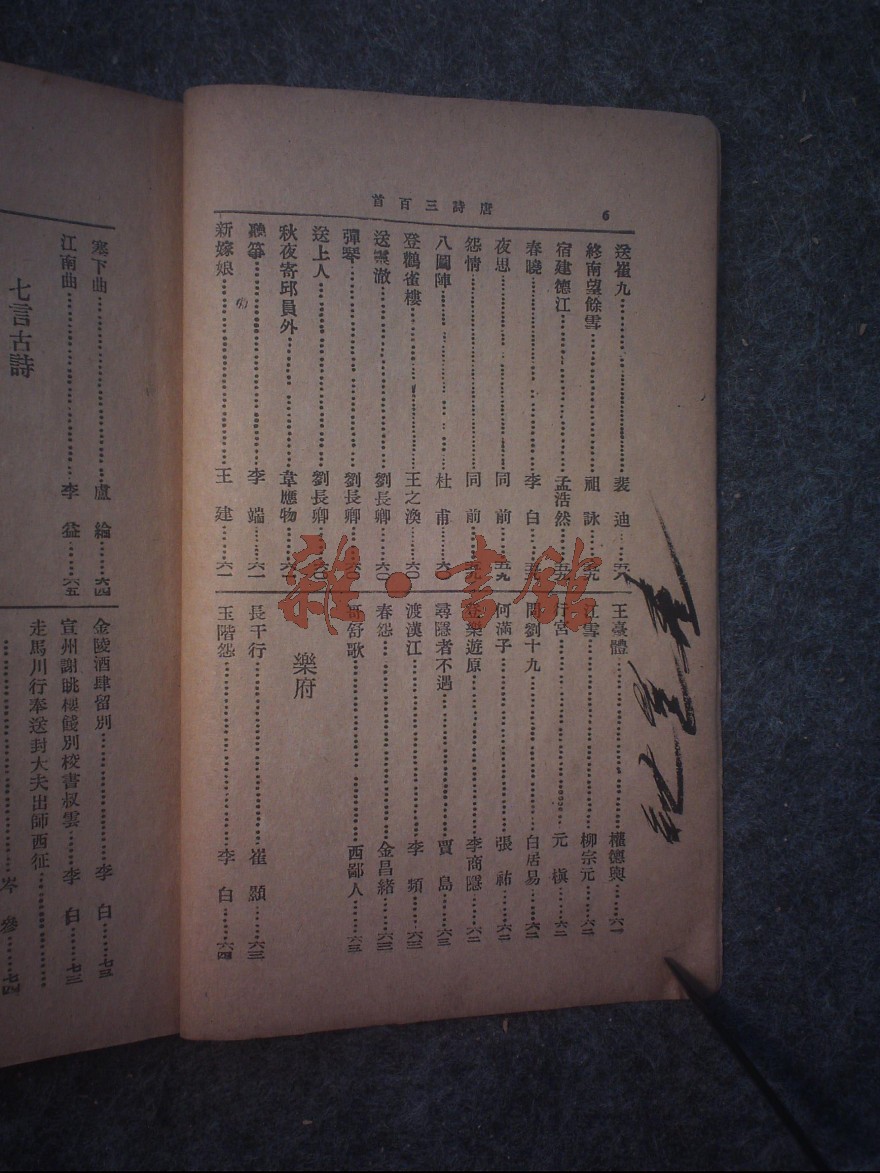 唐詩三百首 6
送崔九……裴迪……五八
終南望餘雪……祖詠……五九
宿建德江……孟浩然……五九
春曉……李白……五九
夜思……同前……五九
怨情……同前……五九
八圖陣……杜甫……六〇
登鸛雀樓……王之渙……六〇
送靈澈……劉長卿……六〇
彈琴……劉長卿……六〇
送上人……劉長卿……六〇
秋夜寄邱員外……韋應物……六
聽箏……李端……六一
新嫁娘……王建……六一
王臺體……權德輿……六一
江雪……柳宗元……六二
行宮……元稹……六二
問劉十九……白居易……六二
何滿子……張祜……六二
登樂遊原……李商隱……六二
尋隱者不遇……賈島……六三
渡漢江……李頻……六三
春怨……金昌緒……六三
哥舒歌……西鄙人……六三
樂府
長干行……崔顥……六三
玉階怨……李白……六四
塞下曲……盧綸……六四
江南曲……李益……六五
七言古詩
金陵酒肆留別……李白……七三
宣州謝眺樓餞別校書叔雲……李白……七三
走馬川行奉送封大夫出師西征……
……岑參……七四
雜·書館